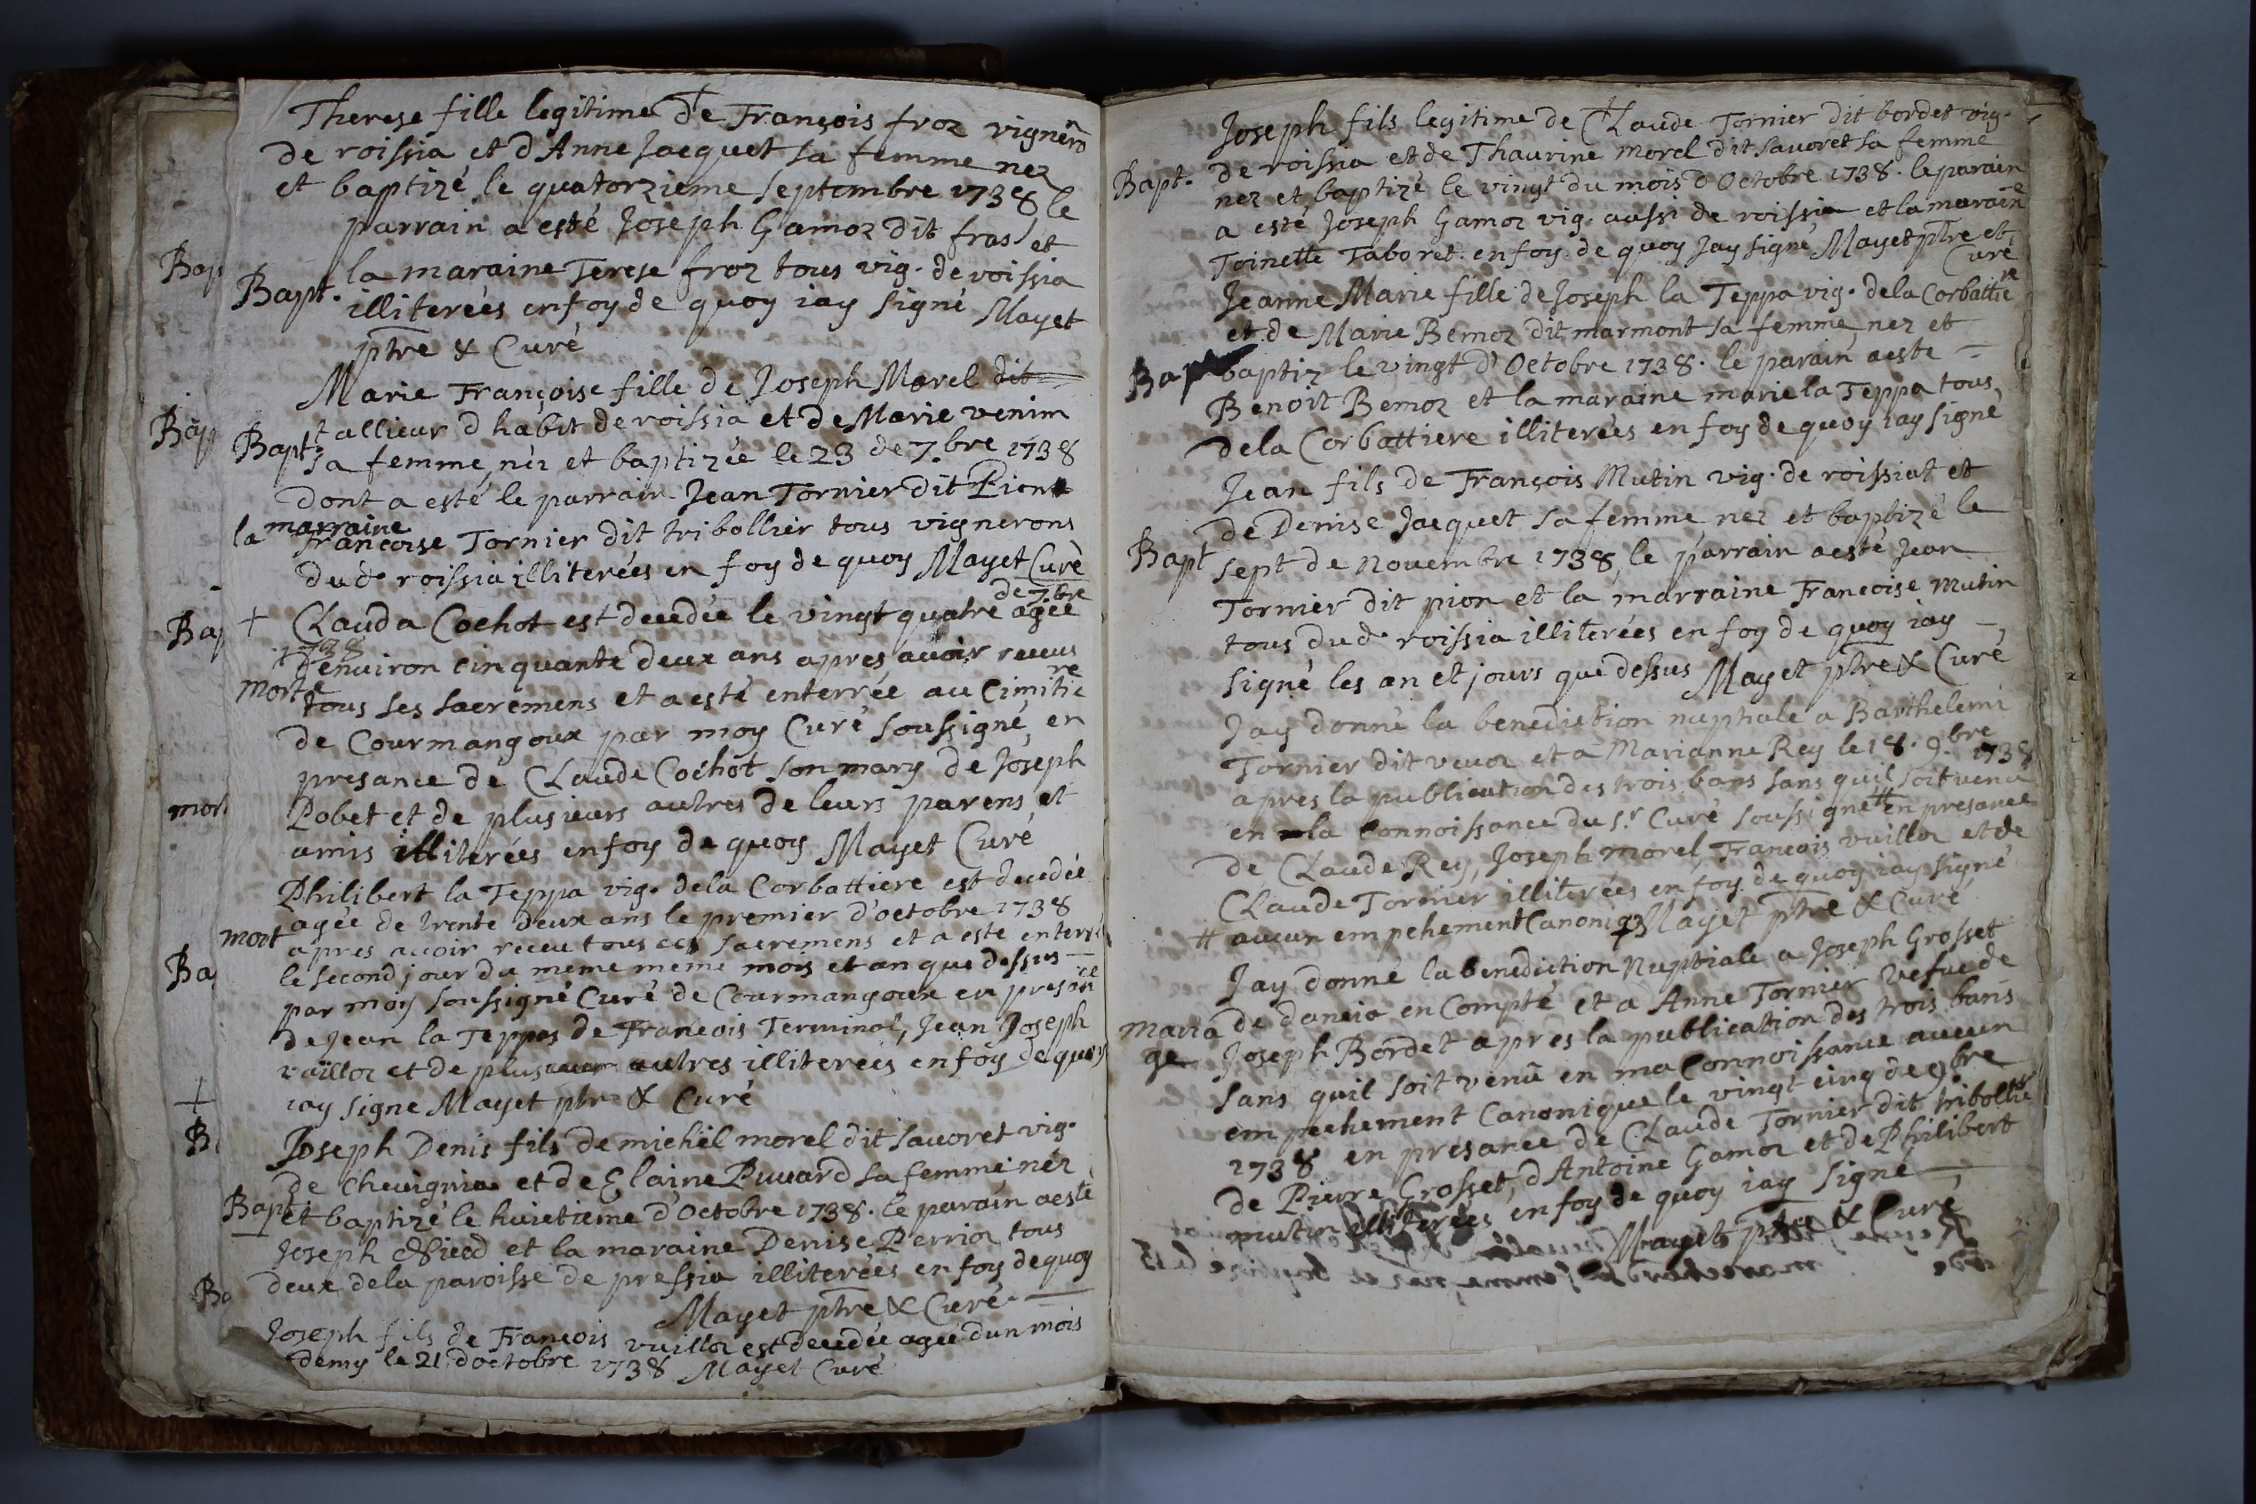 Therese fille legitime de François froz vignērō
de roissia et dAnne Jacquet sa femme nez
et baptizé le quatorzieme septembre 1738 le
parrain a esté Joseph Gamoz dit fras et
la maraine Terese froz tous vig. de roissia
Bapt. illiterées enfoy de quoy iay signé Mayet
ptre & Curé
Marie Françoise fille de Joseph Morel dit
tallieur dhabit de roissia et de Marie venim
Bapt. sa femme, néz et baptizée le 23 de 7.bre 1738
dont a esté le parrain Jean Tornier dit Pion
la marraine
francoise Tornier dit tribollier tous vignerons
dud. roissia illiterées en foy de quoy Mayet Curé
de 7.bre
+ Clauda Cochot est decedée le vingt quatre agée
1738
denviron cinquante deux ans apres avoir receus
morte tous ses sacremens et a esté enterrée au Cimitiere
de Courmangoux par moy Curé soussigné en
presance de Claude Cochot son mary de Joseph
Pobet et de plusieurs autres de leurs parens et
amis illiterées enfoy de quoy Mayet Curé
Philibert la Teppa vig. dela Corbattiere est decedée
agée de trente deux ans le premier d'octobre 1738
mort apres avoir receu tous ces sacremens et a este enterré
le second jour du meme meme mois et an que dessus
par moy soussigné Curé de Courmangoux en presance
de Jean la Teppas de Francois Terminol, Jean Joseph
vailloz et de plusieurs autres illiterées enfoy de quoy
iay signe Mayet ptr & Curé
Joseph Denis fils de michel morel dit savoret vig.
de chevignia et de Elaine Puvard sa femme néz
Bapt et baptizé le huictieme d'Octobre 1738. le parain aesté
Joseph Nicod et la maraine Denise Perrioz tous
deux dela paroisse de pressia illiterées en foy de quoy
Mayet ptre & Curé
Joseph fils de François vuilloz est decedée agée dun mois
demy le 21 doctobre 1738 Mayet Curé
Joseph fils legitime de Claude Tornier dit bordet vig.
Bapt. de roissia et de Thaurine morel dit savoret sa femme
nez et baptizé le vingt du mois d Octobre 1738. le parain
a esté Joseph Gamoz vig. aussi de roissia et la maraine
Toinette Taboret. enfoy de quoy Jay signé Mayet ptre et
Curé
Jeanne Marie fille de Joseph la Teppa vig. dela Corbattiere
et de Marie Bemoz dit marmont sa femme, nez et
Bapt baptiz le vingt d'Octobre 1738. le parain aeste
Benoit Bemoz et la maraine marie la Teppa tous
dela Corbattiere illiterées en foy de quoy iay signé
Jean fils de François Mutin vig. de roissiat et
de Denise Jacquet sa femme nez et baptizé le
Bapt sept de Novembre 1738, le parrain aesté Jean
Tornier dit pion et la marraine Francoise Mutin
tous dud. roissia illiterées en foy de quoy iay
signé les an et jours que dessus Mayet ptre & Curé
Jay donné la benediction nuptiale a Barthelemi
Tornier dit vevoz et a Marianne Rey le 18. 9.bre 1738
apres la publication des trois bans sans quil soit venu
en la Connoissance du S.r Curé soussigné # en presance
de Claude Rey, Joseph morel, Francois vuilloz et de
Claude Tornier illiterées en foy de quoy iay signé
# aucun empehement Canoniq; Mayet ptre & Curé
Jay donné la benediction Nuptiale a Joseph Grosset
Maria de dancia en Compté et a Anne Tornier vefve de
ge Joseph Bordet apres la publication des trois bans
sans quil soit venu en ma Connoissance aucun
empechement Canonique le vingt cinq de 9bre
1738 en presance de Claude Tornier dit tribollier
de Pierre Grosset, d Antoine Gamoz et de Philibert
mutin illiterées en foy de quoy iay signé
Mayet ptre & Curé